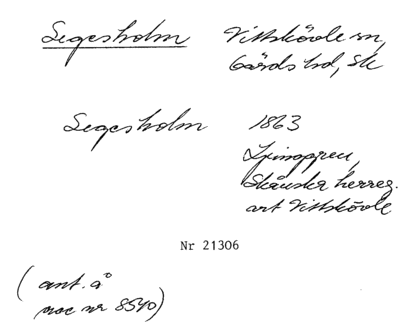 Segesholm Vittskövle sn,
Gärds hd, Sk
Segesholm 1863
Ljunggren,
Skånska herreg.
art Vittskövle
Nr 21306
(ant. å
acc nr 8590)